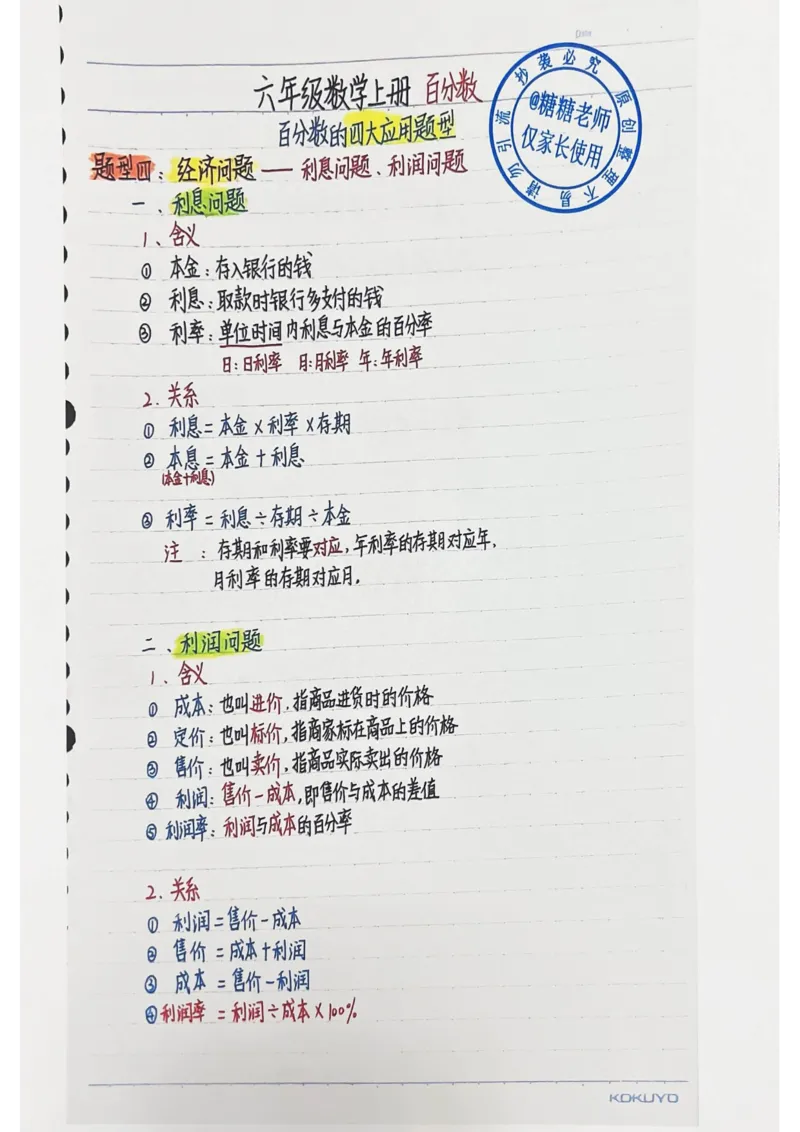 Date
六年级数学上册 百分数
百分数的四大应用题型
题型四：经济问题 —— 利息问题、利润问题
一、利息问题
1、含义
① 本金：存入银行的钱
② 利息：取款时银行多支付的钱
③ 利率：单位时间内利息与本金的百分率
日：日利率 月：月利率 年：年利率
2.关系
① 利息=本金×利率×存期
② 本息=本金+利息
(本金+利息)
③ 利率=利息÷存期÷本金
注：存期和利率要对应，年利率的存期对应年，
月利率的存期对应月。
二、利润问题
1、含义
① 成本：也叫进价，指商品进货时的价格
② 定价：也叫标价，指商家标在商品上的价格
③ 售价：也叫卖价，指商品实际卖出的价格
④ 利润：售价-成本，即售价与成本的差值
⑤ 利润率：利润与成本的百分率
2.关系
① 利润=售价-成本
② 售价=成本+利润
③ 成本=售价-利润
④利润率=利润÷成本×100%
原创整理不易请勿引流抄袭必究
@糖糖老师
仅家长使用
KOKUYO